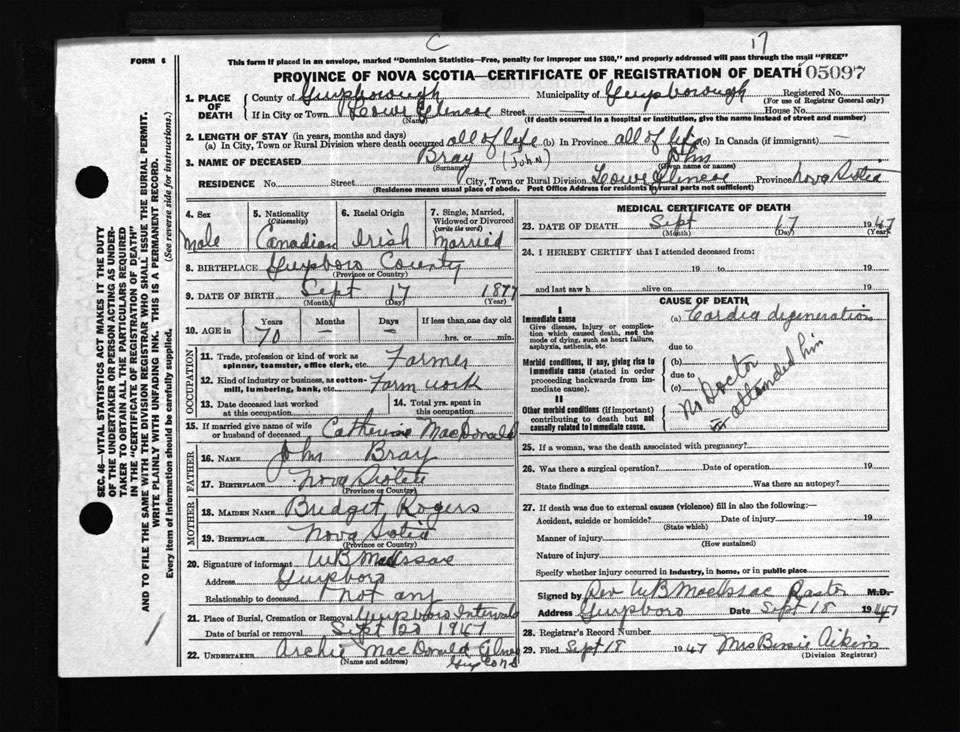 C 17
FORM 6
This form if placed in an envelope, marked "Dominion Statistics—Free, penalty for improper use $300," and properly addressed will pass through the mail "FREE"
PROVINCE OF NOVA SCOTIA—CERTIFICATE OF REGISTRATION OF DEATH 05097
1. PLACE OF DEATH
County of Guysborough Municipality of Guysborough Registered No.
(For use of Registrar General only)
If in City or Town Street House No.
(Name) (If death occurred in a hospital or institution, give the name instead of street and number)
2. LENGTH OF STAY (in years, months and days)
(a) In City, Town or Rural Division where death occurred all of life (b) In Province all of life (c) In Canada (if immigrant) —
3. NAME OF DECEASED Bray (John) John
(Surname) (Given name or names)
RESIDENCE No. Street City, Town or Rural Division Province Nova Scotia
(Residence means usual place of abode. Post Office Address for residents in rural parts not sufficient)
4. Sex
Male
5. Nationality
(Citizenship)
Canadian
6. Racial Origin
Irish
7. Single, Married, Widowed or Divorced
(write the word)
Married
8. BIRTHPLACE Guysboro County
(Province or Country)
9. DATE OF BIRTH Sept 17 1877
(Month) (Day) (Year)
10. AGE in
Years Months Days If less than one day old
70 — — hrs. or min.
OCCUPATION
11. Trade, profession or kind of work as spinner, teamster, office clerk, etc. Farmer
12. Kind of industry or business, as cotton-mill, lumbering, bank, etc. Farm work
13. Date deceased last worked at this occupation
14. Total yrs. spent in this occupation
15. If married give name of wife or husband of deceased Catherine MacDonald
FATHER
16. NAME John Bray
17. BIRTHPLACE Nova Scotia
(Province or Country)
MOTHER
18. MAIDEN NAME Bridget Rogers
19. BIRTHPLACE Nova Scotia
(Province or Country)
20. Signature of informant WB MacIssac
Address Guysboro
Relationship to deceased not any
21. Place of Burial, Cremation or Removal Guysboro Intervale
Date of burial or removal Sept 1947
22. UNDERTAKER Archie MacDonald
(Name and address)
MEDICAL CERTIFICATE OF DEATH
23. DATE OF DEATH Sept 17 1947
(Month) (Day) (Year)
24. I HEREBY CERTIFY that I attended deceased from
19 to 19
and last saw h alive on 19
CAUSE OF DEATH
Immediate cause
Give disease, injury or complication which caused death, not the mode of dying, such as heart failure, asphyxia, asthenia, etc.
(a) Cardia degeneration
due to
Morbid conditions, if any, giving rise to immediate cause (stated in order proceeding backwards from immediate cause).
(b)
due to
(c)
II
Other morbid conditions (if important) contributing to death but not causally related to immediate cause.
No Doctor attended him
25. If a woman, was the death associated with pregnancy?
26. Was there a surgical operation? Date of operation 19
State findings Was there an autopsy?
27. If death was due to external causes (violence) fill in also the following:—
Accident, suicide or homicide? Date of injury 19
(State which)
Manner of injury
(How sustained)
Nature of injury
Specify whether injury occurred in industry, in home, or in public place
Signed by Rev WB MacIssac Pastor M.D.
Address Guysboro Date Sept 18 1947
28. Registrar's Record Number
29. Filed Sept 18 1947 Mrs Aikins
(Division Registrar)
SEC. 46—VITAL STATISTICS ACT MAKES IT THE DUTY
OF THE UNDERTAKER OR PERSON ACTING AS UNDER-
TAKER TO OBTAIN ALL THE PARTICULARS REQUIRED
IN THE "CERTIFICATE OF REGISTRATION OF DEATH"
AND TO FILE THE SAME WITH THE DIVISION REGISTRAR WHO SHALL ISSUE THE BURIAL PERMIT.
WRITE PLAINLY WITH UNFADING INK. THIS IS A PERMANENT RECORD.
Every item of information should be carefully supplied. (See reverse side for instructions.)